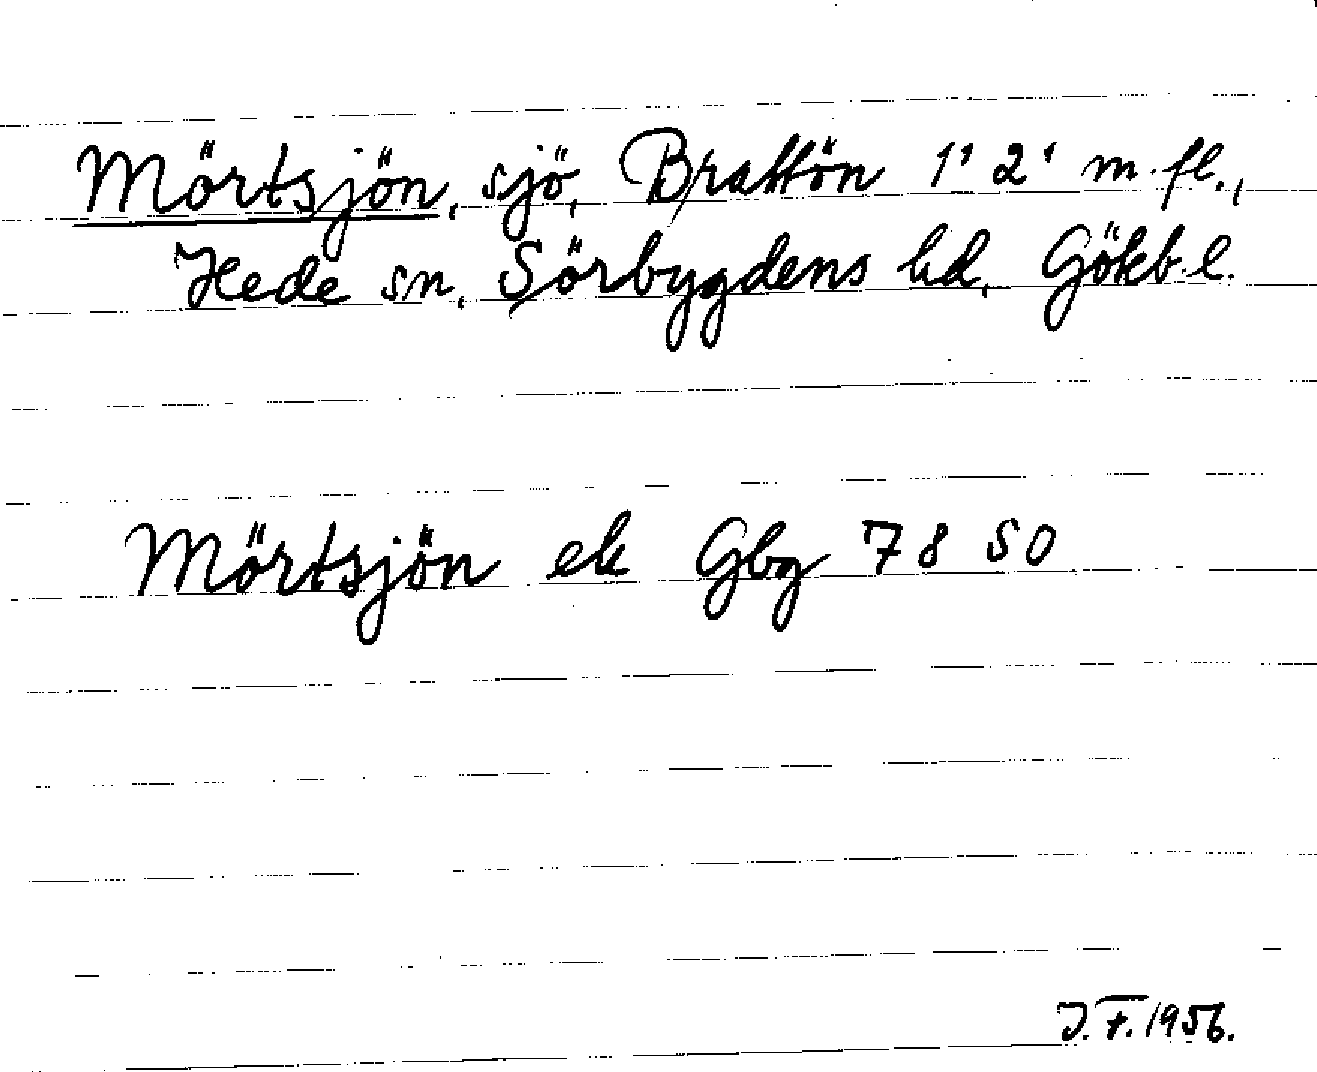 Mörtsjön, sjö, Brattön 1' 2' m.fl.,
Hede sn, Sörbygdens hd, Gökb.l.
Mörtsjön ek Gbg 78 50
J.F. 1956.